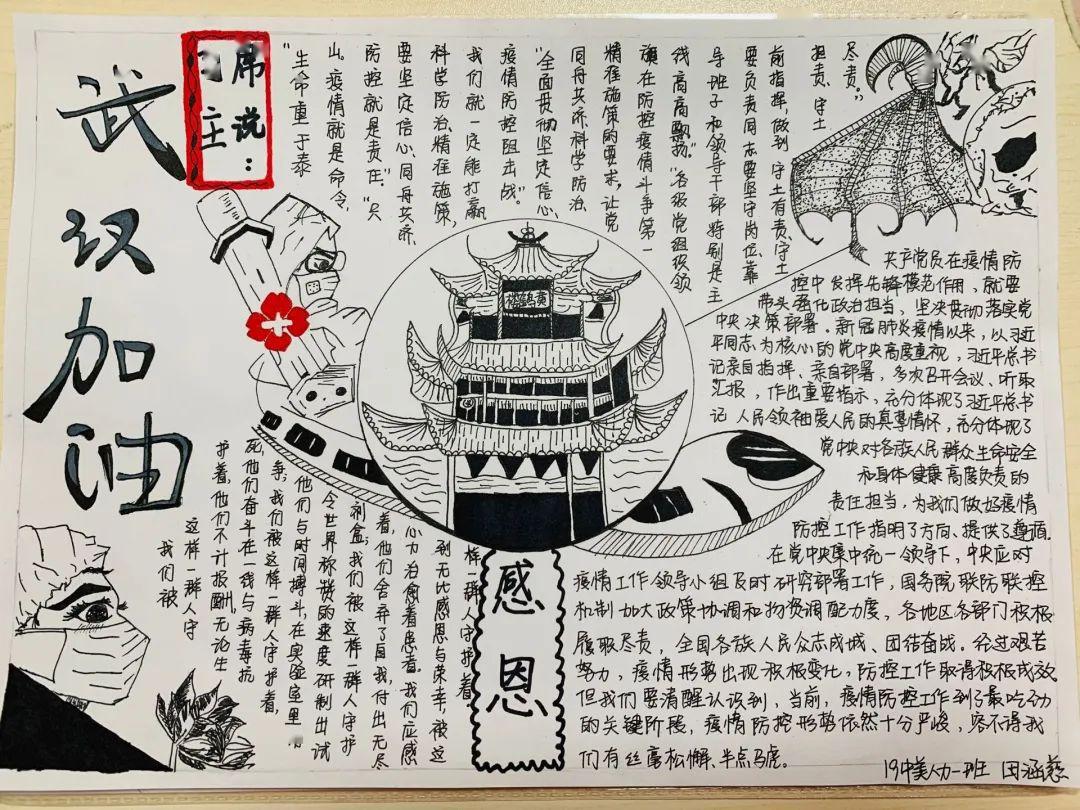 武汉加油
席说：
主
“生命重于泰
山。疫情就是命令，
防控就是责任。”“只
要坚定信心、同舟共济、
科学防治、精准施策，
我们就一定能打赢
疫情防控阻击战。”
“全面贯彻坚定信心、
同舟共济、科学防治、
精准施策的要求，让党
旗在防控疫情斗争第一
线高高飘扬。”“各级党组织领
导班子和领导干部特别是主
要负责同志要坚守岗位、靠
前指挥，做到守土有责、守土
担责、守土
尽责。”
黄鹤楼
共产党员在疫情防
控中发挥先锋模范作用，就要
带头强化政治担当，坚决贯彻落实党
中央决策部署。新冠肺炎疫情以来，以习近
平同志为核心的党中央高度重视，习近平总书
记亲自指挥、亲自部署，多次召开会议、听取
汇报，作出重要指示，充分体现了习近平总书
记人民领袖爱人民的真挚情怀，充分体现了
党中央对各族人民群众生命安全
和身体健康高度负责的
责任担当，为我们做好疫情
防控工作指明了方向、提供了遵循。
在党中央集中统一领导下，中央应对
疫情工作领导小组及时研究部署工作，国务院联防联控
机制加大政策协调和物资调配力度，各地区各部门积极
履职尽责，全国各族人民众志成城、团结奋战。经过艰苦
努力，疫情形势出现积极变化，防控工作取得积极成效
但我们要清醒认识到，当前，疫情防控工作到了最吃劲
的关键阶段，疫情防控形势依然十分严峻，容不得我
们有丝毫松懈、半点马虎。
感恩
我们被
这样一群人守
护着，他们不计报酬，无论生
死，他们奋斗在一线与病毒抗
争；我们被这样一群人守护着，
他们与时间搏斗，在实验室里
令世界称赞的速度研制出试
剂盒；我们被这样一群人守护
着，他们舍弃了自我，付出无尽
心力治愈着患者。我们应感
到无比感恩与荣幸，被这
样一群人守护着
19中美人力一班 田涵慈